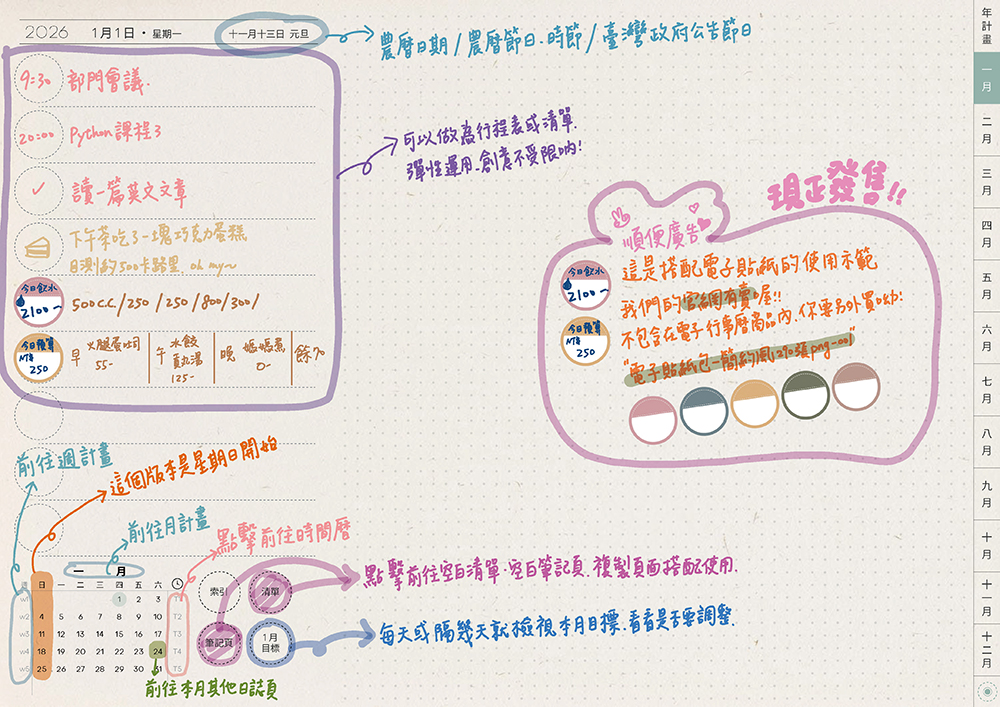 2026 1月1日・星期一 十一月十三日 元旦
農曆日期/農曆節日、時節/臺灣政府公告節日
9:30 部門會議.
20:00 Python課程3
✓ 讀一篇英文文章
下午茶吃了一塊巧克力蛋糕
目測約500卡路里. oh my~
今日飲水
2100~
500c.c./250/250/800/300/
今日預算
NT$
250
早 火腿蛋吐司
55-
午 水餃
貢丸湯
125-
晚 媽媽煮
0-
餘70
可以做為行程表或清單.
彈性運用、創意不受限吶!
現正發售!!
順便廣告
今日飲水
2100~
這是搭配電子貼紙的使用示範
我們的官網有賣喔!!
今日預算
NT$
250
不包含在電子行事曆商品內,你要另外買呦!
"電子貼紙包-簡約風120張png-001"
前往週計畫
這個版本是星期日開始
前往月計畫
點擊前往時間曆
一月
週 日 一 二 三 四 五 六
w1 1 2 3 T1
w2 4 5 6 7 8 9 10 T2
w3 11 12 13 14 15 16 17 T3
w4 18 19 20 21 22 23 24 T4
w5 25 26 27 28 29 30 31 T5
索引
清單
筆記頁
1月
目標
點擊前往空白清單、空白筆記頁、複製頁面搭配使用.
每天或隔幾天就檢視本月目標、看看是否要調整.
前往本月其他日誌頁
年計畫
一月
二月
三月
四月
五月
六月
七月
八月
九月
十月
十一月
十二月